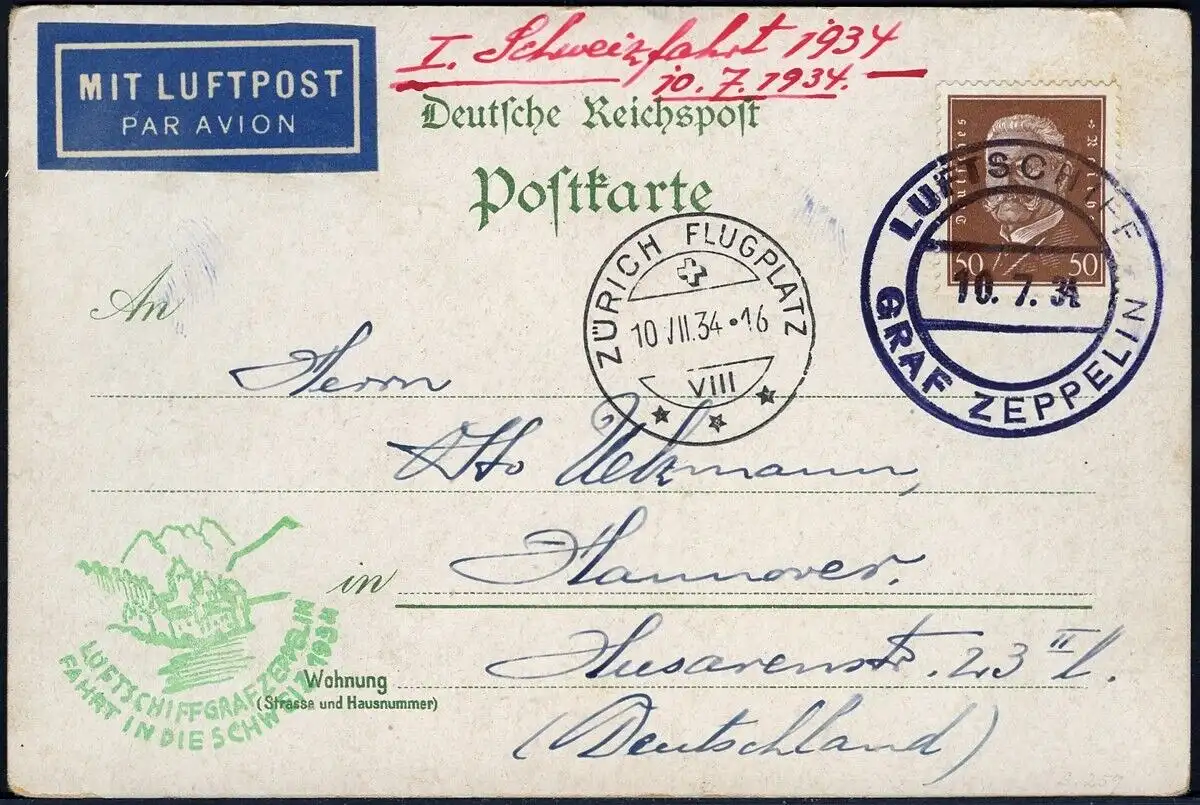 MIT LUFTPOST
PAR AVION
I. Schweizfahrt 1934
10.7.1934.
Deutsche Reichspost
Postkarte
Deutsches Reich
50 50
LUFTSCHIFF
10.7.34
GRAF ZEPPELIN
ZÜRICH FLUGPLATZ
10 VII.34•16
VIII
An
Herrn
Otto Uekmann,
in Hannover.
Wohnung
(Strasse und Hausnummer)
Husarenstr. 23 II l.
(Deutschland)
LUFTSCHIFF GRAF ZEPPELIN
FAHRT IN DIE SCHWEIZ 1934